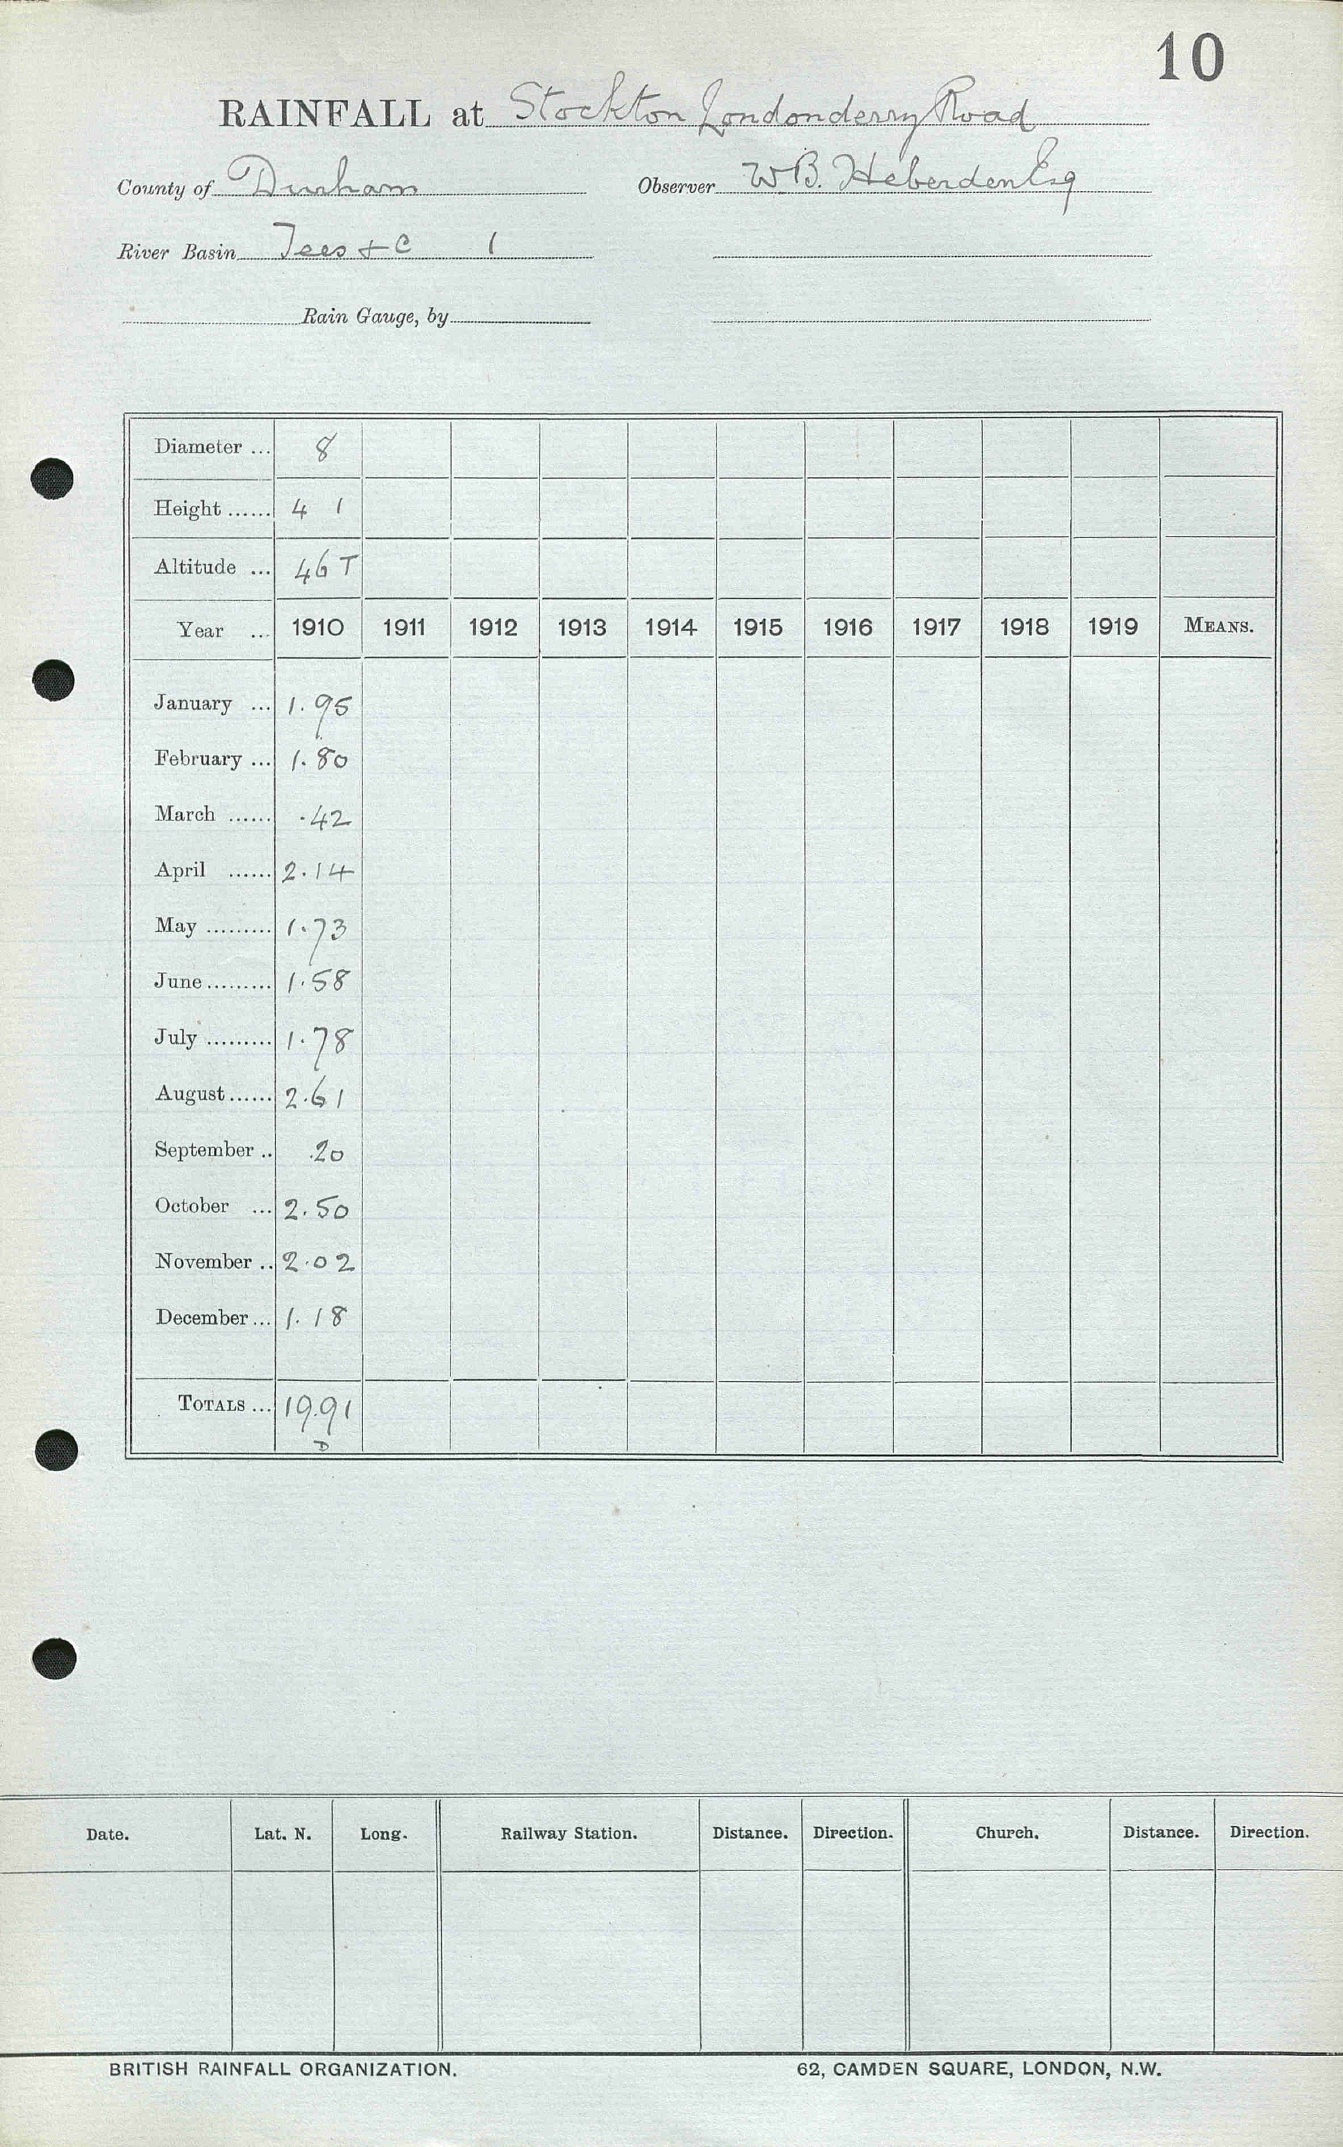 10
RAINFALL at Stockton Londonderry Road
County of Durham Observer W B. Heberden Esq
River Basin Tees + C 1
Rain Gauge, by
Diameter ... 8
Height ...... 4 1
Altitude ... 46 T
Year ... 1910 1911 1912 1913 1914 1915 1916 1917 1918 1919 MEANS.
January ... 1.95
February ... 1.80
March ...... .42
April ...... 2.14
May ......... 1.73
June ......... 1.58
July ......... 1.78
August ...... 2.61
September .. .20
October ... 2.50
November .. 2.02
December ... 1.18
TOTALS ... 19.91
D
Date. Lat. N. Long. Railway Station. Distance. Direction. Church. Distance. Direction.
BRITISH RAINFALL ORGANIZATION. 62, CAMDEN SQUARE, LONDON, N.W.